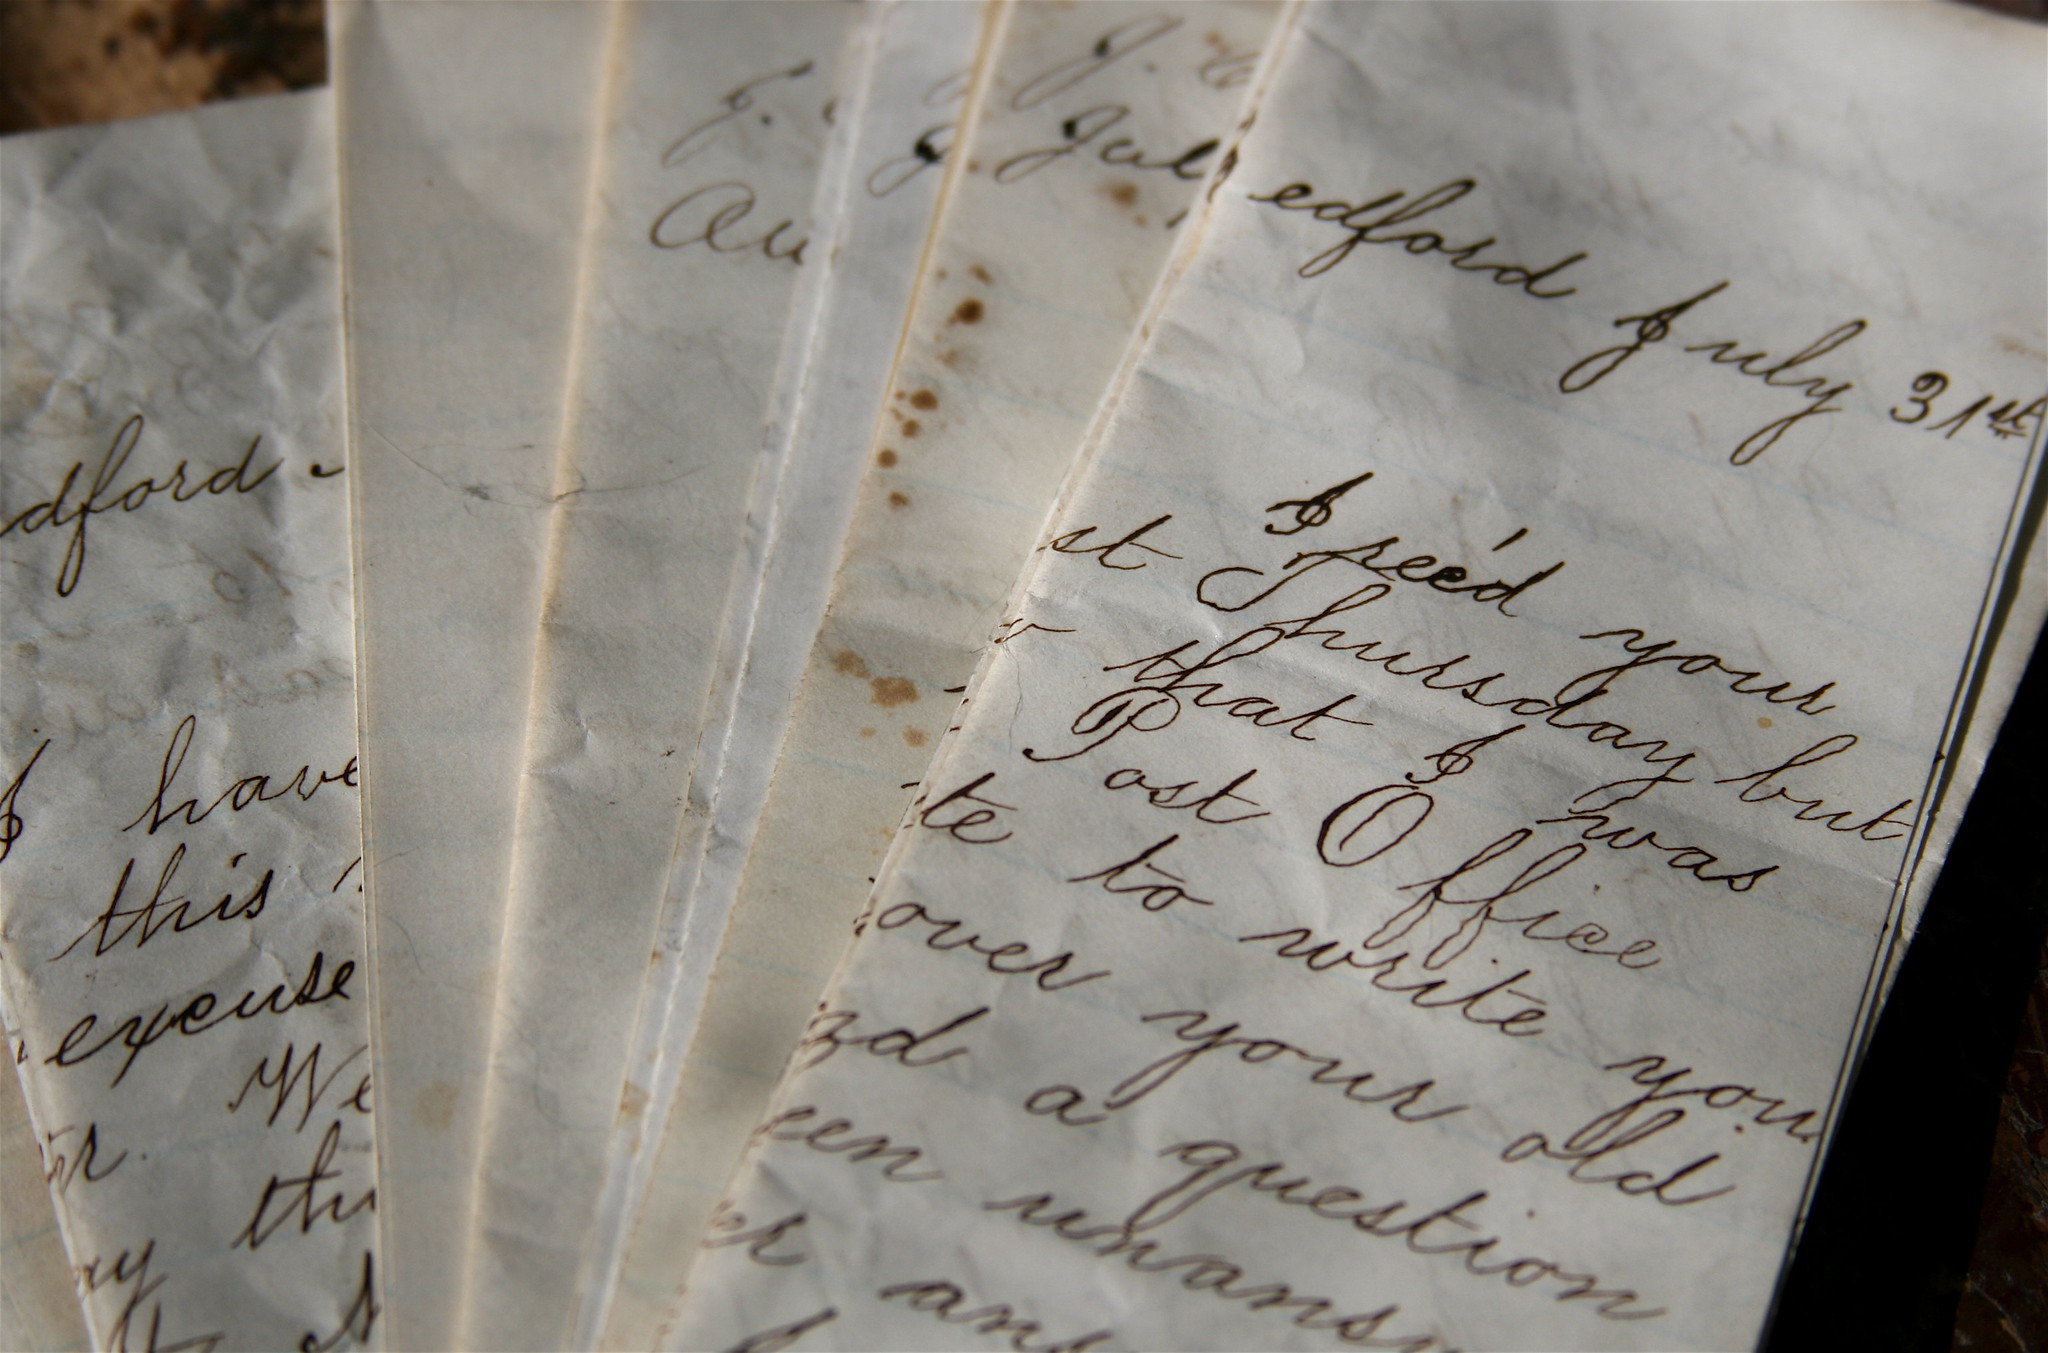 edford July 31st
I rec'd your
st Thursday but
that I was
Post Office
te to write you
over your old
zd a question
een unansw
er ans
J.
Jul
Au
dford
I have
this
excuse
We
thi
ay